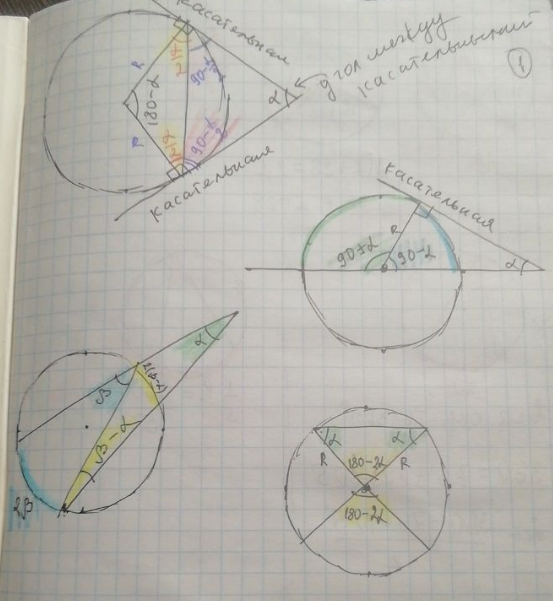 касательная
угол между
касательными
1
R
α/2
90-α/2
180-α
α
R
α/2
90-α/2
касательная
касательная
R
90+α
90-α
α
α
2(β-α)
β
β-α
2β
α
α
R
180-2α
R
180-2α